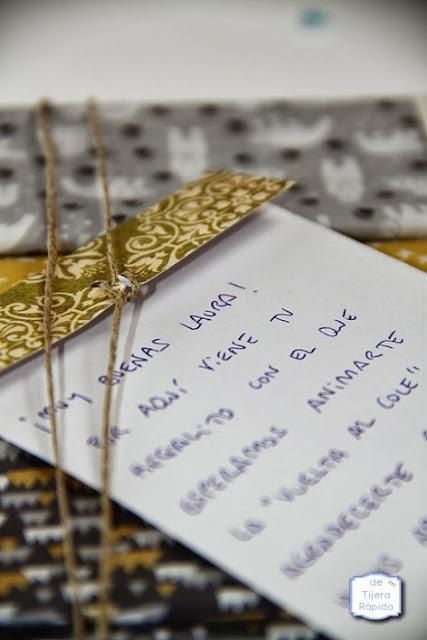 ¡MUY BUENAS LAURA!
POR AQUÍ VIENE TU
REGALITO CON EL QUE
ESPERAMOS ANIMARTE
LA "VUELTA AL COLE"
AGRADECERTE
de
Tijera
Rápida